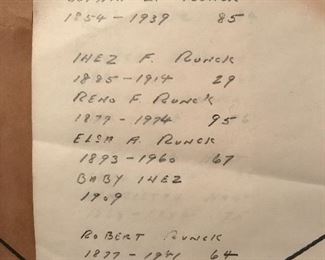 1854-1939 85
INEZ F. RUNCK
1885-1914 29
RENO F. RUNCK
1879-1974 95
ELSA A. RUNCK
1893-1960 67
BABY INEZ
1909
ROBERT RUNCK
1877-1941 64